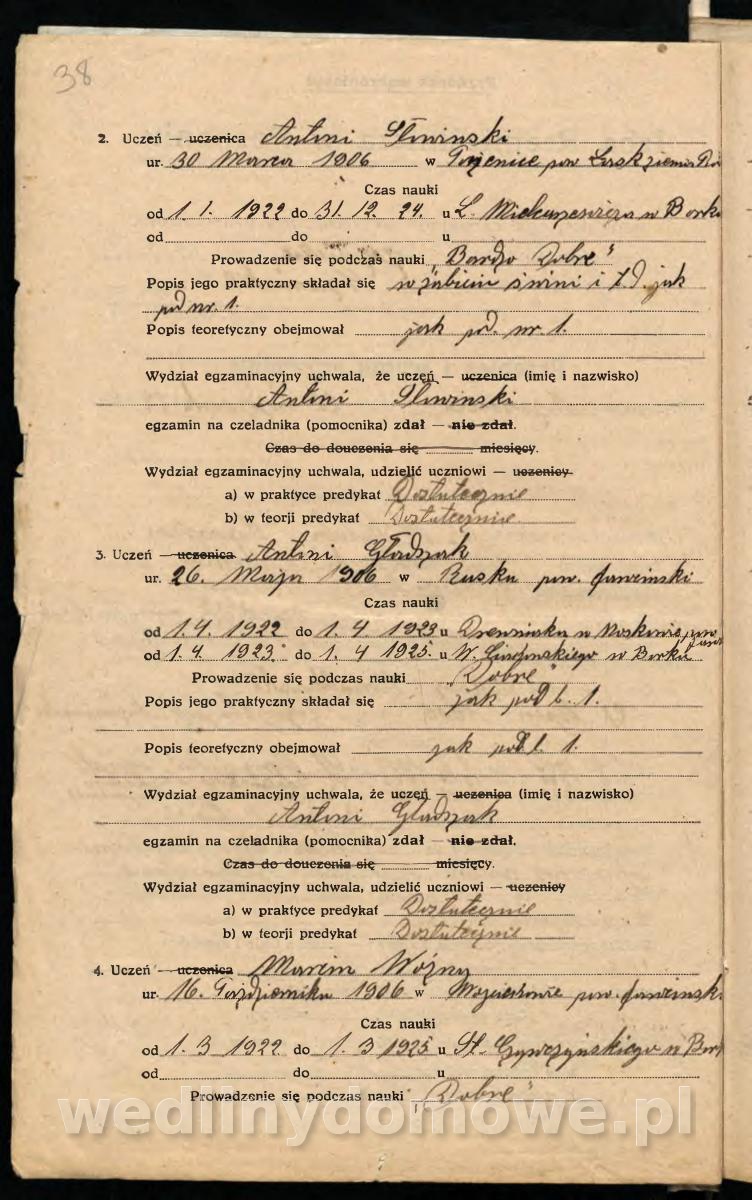 38
2. Uczeń — uczenica Antoni Śliwinski
ur. 30 Marca 1906 w pow.
Czas nauki
od 1. 1. 1922 do 31. 12. 24. u L. w Bork
od do u
Prowadzenie się podczas nauki „Bardzo Dobre"
Popis jego praktyczny składał się w zabiciu świni i t. d. jak
pod nr. 1.
Popis teoretyczny obejmował jak pod. nr. 1.
Wydział egzaminacyjny uchwala, że uczęń — uczenica (imię i nazwisko)
Antoni Śliwinski
egzamin na czeladnika (pomocnika) zdał — nie zdał.
Czas do douczenia się miesięcy.
Wydział egzaminacyjny uchwala, udzielić uczniowi — uczenicy
a) w praktyce predykat Dostatecznie
b) w teorji predykat Dostatecznie
3. Uczeń — uczenica Antoni Gładzak
ur. 26. Maja 1906 w Rusku pow. Jarocinski
Czas nauki
od 1. 4. 1922 do 1. 4. 1923 u w pow.
od 1. 4. 1923. do 1. 4 1925. u W. w Borku
Prowadzenie się podczas nauki „Dobre"
Popis jego praktyczny składał się jak pod l. 1.
Popis teoretyczny obejmował jak pod l. 1.
Wydział egzaminacyjny uchwala, że uczęń — uczenica (imię i nazwisko)
Antoni Gładzak
egzamin na czeladnika (pomocnika) zdał — nie zdał.
Czas do douczenia się miesięcy.
Wydział egzaminacyjny uchwala, udzielić uczniowi — uczenicy
a) w praktyce predykat Dostatecznie
b) w teorji predykat Dostatecznie
4. Uczeń — uczenica Marcin Woźny
ur. 16. Październiku 1906 w pow. Jarocinsk
Czas nauki
od 1. 3 1922 do 1. 3 1925 u St. w Bork
od do u
Prowadzenie się podczas nauki „Dobre"
wedlinydomowe.pl